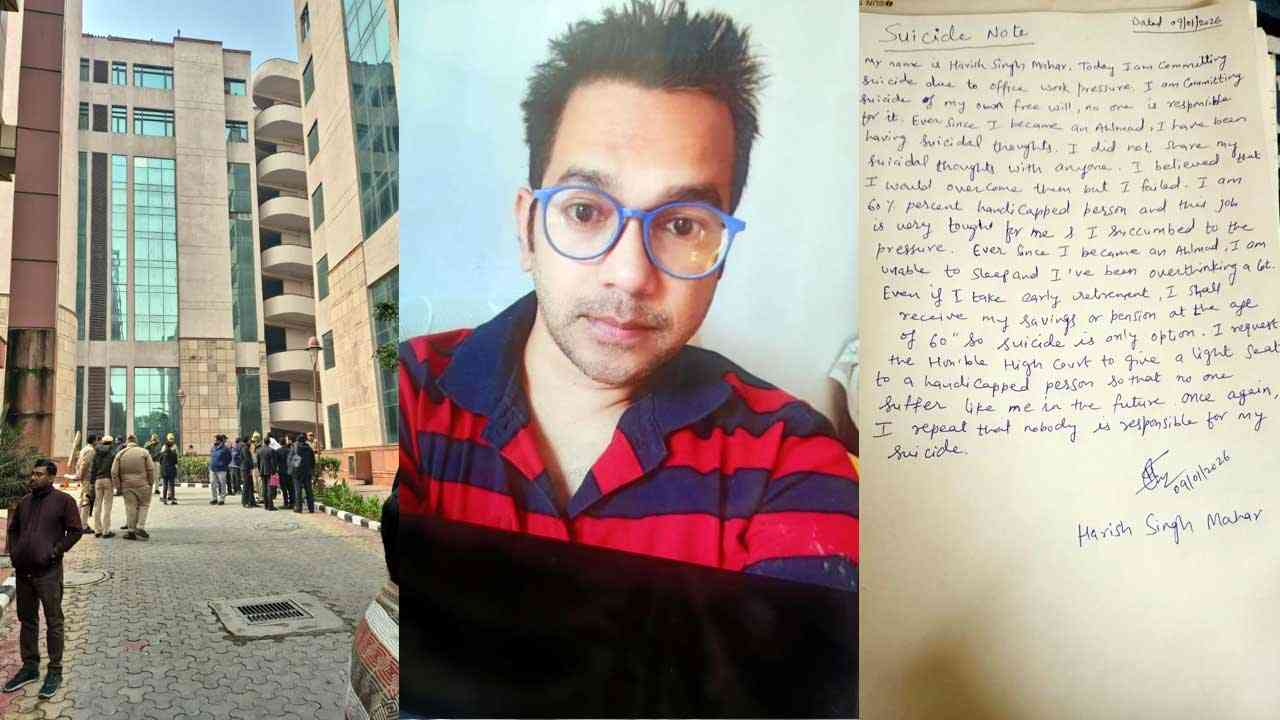 Suicide Note
Dated 09/01/2026
My name is Harish Singh Mahar. Today I am Committing
suicide due to office work pressure. I am Committing
suicide of my own free will, no one is responsible
for it. Ever Since I became an Ahlmad, I have been
having Suicidal thoughts. I did not share my
suicidal thoughts with anyone. I believed that
I would overcome them but I failed. I am
60% percent handicapped person and this job
is very tought for me & I Succumbed to the
pressure. Ever Since I became an Ahlmad, I am
unable to sleep and I've been overthinking a lot.
Even if I take early retirement, I shall
receive my savings or pension at the age
of 60" So suicide is only option. I request
the Hon'ble High Court to give a light Seat
to a handicapped person so that no one
suffer like me in the future once again,
I repeat that nobody is responsible for my
suicide.
09/01/2026
Harish Singh Mahar